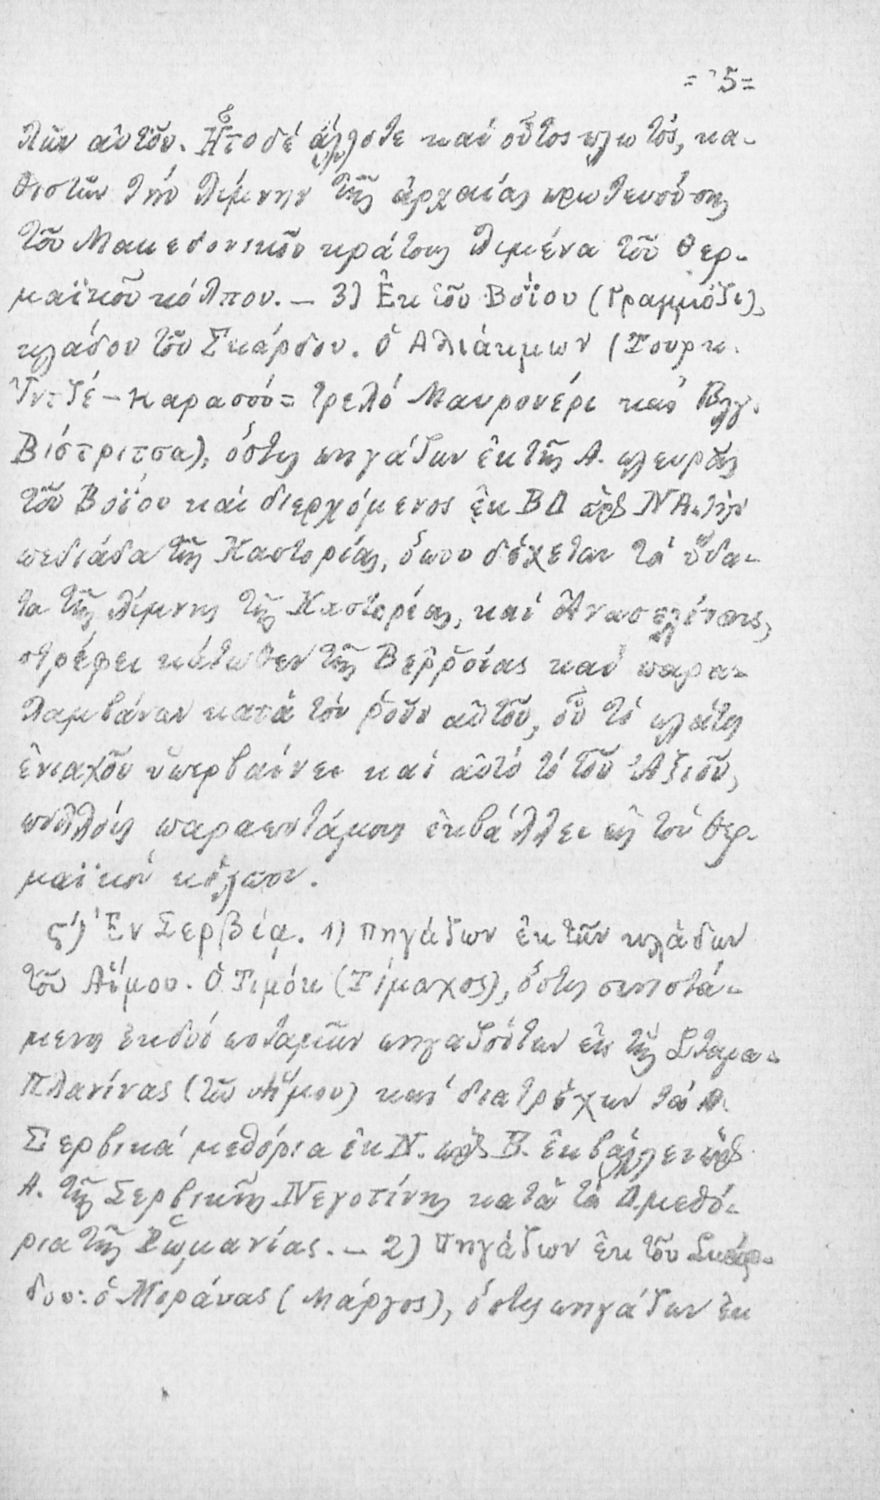 = 5 =
λῶν αὐτοῦ. Ἦτο δέ ἄλλοτε καί οὗτος πλωτός, κα-
θιστῶν τήν λίμνην τῆς ἀρχαίας πρωτευούσης
τοῦ Μακεδονικοῦ κράτους λιμένα τοῦ Θερ-
μαϊκοῦ κόλπου. — 3) Ἐκ τοῦ Βοΐου (Γραμμόζι),
κλάδου τοῦ Σκάρδου. Ὁ Ἁλιάκμων (Τουρκ.
Ἰντζέ-Καρασού = τρελό Μαυρονέρι καί Βλγ.
Βίστριτσα), ὅστις πηγάζων ἐκ τῆς Α. πλευρᾶς
τοῦ Βοΐου καί διερχόμενος ἐκ ΒΔ πρός ΝΑ. τήν
πεδιάδα τῆς Καστορίας, ὅπου δέχεται τά ὕδα-
τα τῆς λίμνης τῆς Καστορίας, καί Ἀνασελίτσης,
στρέφει κάτωθεν τῆς Βερῤοίας καί παρα-
λαμβάνων κατά τόν ῥοῦν αὐτοῦ, οὗ τό πλάτος
ἐνιαχοῦ ὑπερβαίνει καί αὐτό τό τοῦ Ἀξιοῦ,
πολλούς παραποτάμους ἐκβάλλει εἰς τόν Θερ-
μαϊκόν κόλπον.
ς') Ἐν Σερβίᾳ. 1) Πηγάζων ἐκ τῶν κλάδων
τοῦ Αἵμου. Ὁ Τιμόκ (Τίμαχος), ὅστις συνιστά-
μενος ἐκ δυό ποταμῶν πηγαζόντων ἐκ τῆς Σταρα-
Πλανίνας (τοῦ Αἵμου) καί διατρέχων τά Α.
Σερβικά μεθόρια ἐκ Ν. πρός Β. ἐκβάλλει πρός
Α. τῆς Σερβικῆς Νεγοτίνης κατά τά Δ. μεθό-
ρια τῆς Ῥωμανίας. — 2) Πηγάζων ἐκ τοῦ Σκάρ-
δου: ὁ Μοράυας (Μάργος), ὅστις πηγάζων ἐκ